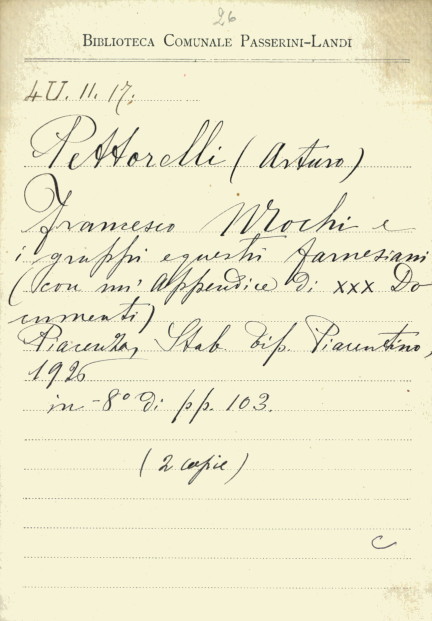 26
BIBLIOTECA COMUNALE PASSERINI-LANDI
4U. II. 17.
Pettorelli (Arturo)
Francesco Mochi e
i gruppi equestri farnesiani
(con un'appendice di XXX Do
cumenti)
Piacenza, Stab. tip. Piacentino,
1926
in-8° di pp. 103.
(2 copie)
C